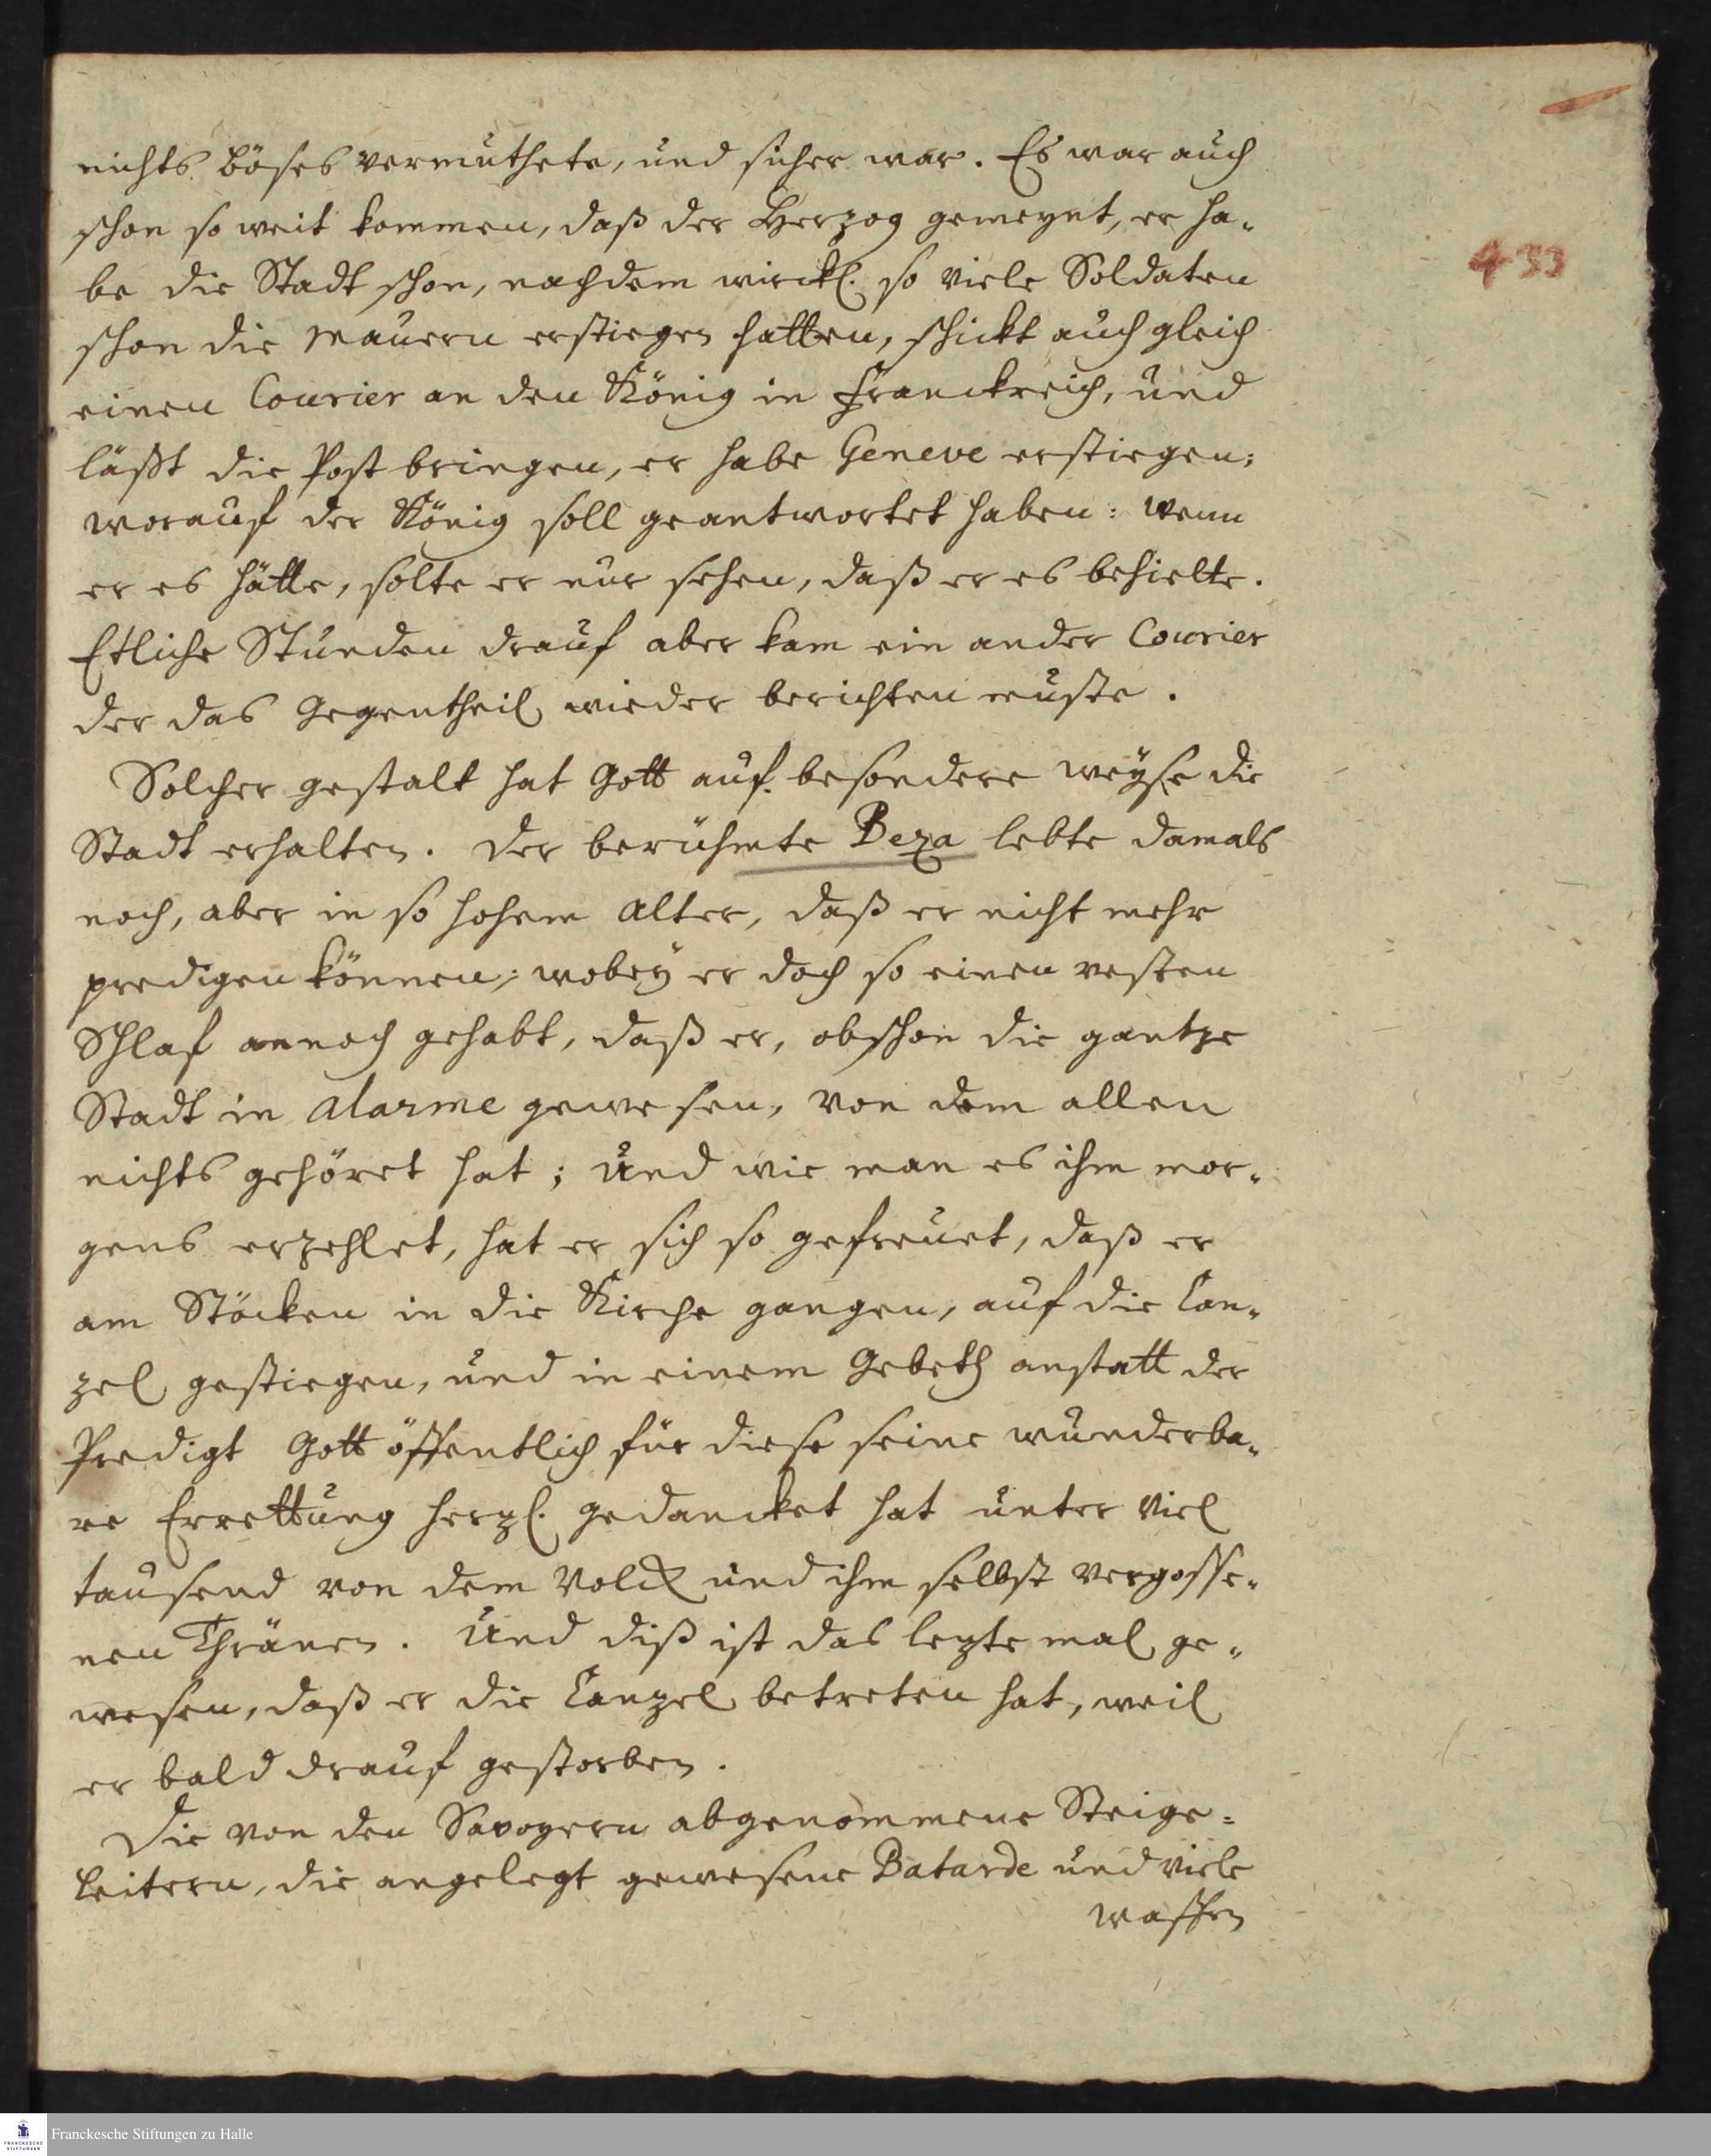 nichts böses vermuthete, und sicher war. Es war auch
schon so weit kommen, daß der Herzog gemeynt, er ha-
be die Stadt schon, nachdem wirckl. so viele Soldaten
schon die Mauern erstiegen hatten, schickt auch gleich
einen Courier an den König in Franckreich, und
läßt die Post bringen, er habe Geneve erstiegen;
worauf der König soll geantwortet haben: wenn
er es hätte, solte er nur sehen, daß er es behielte.
Etliche Stunden drauf aber kam ein ander Courier
der das Gegentheil wieder berichten muste.
Solcher gestalt hat Gott auf besondere weyse die
Stadt erhalten. Der berühmte Beza lebte damals
noch, aber in so hohem Alter, daß er nicht mehr
predigen können, wobey er doch so einen vesten
Schlaf annoch gehabt, daß er, obschon die gantze
Stadt in Alarme gewesen, von dem allen
nichts gehöret hat; Und wie man es ihm mor-
gens erzehlet, hat er sich so gefreuet, daß er
am Stöcken in die Kirche gangen, auf die Can-
zel gestiegen, und in einem Gebeth anstatt der
Predigt Gott öffentlich für diese seine wunderba-
re Errettung herzl. gedancket hat unter viel
tausend von dem Volck und ihm selbst vergosse-
nen Thränen. Und diß ist das lezte mal ge-
wesen, daß er die Canzel betreten hat, weil
er bald drauf gestorben.
Die von den Savoyern abgenommene Steige=
Leitern, die angelegt gewesene Batarde und viele
Waffen
433
Franckesche Stiftungen zu Halle
FRANCKESCHE STIFTUNGEN